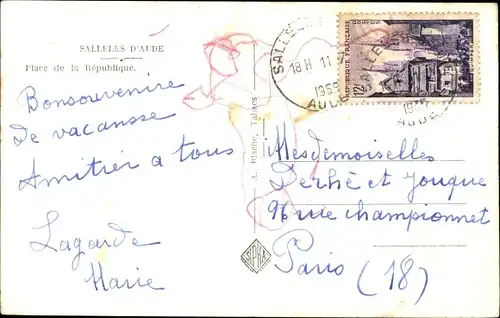 SALLELES D'AUDE
Place de la République.
Bonsouvenire
de vacansse
Amitier a tous
Lagarde
Marie
A. Blache,
SALLELES
18H 11
1955
AUDE
POSTES
REPUBLIQUE FRANÇAISE
12F
Mesdemoiselles
Derhé et Jouque
96 rue championnet
Paris (18)